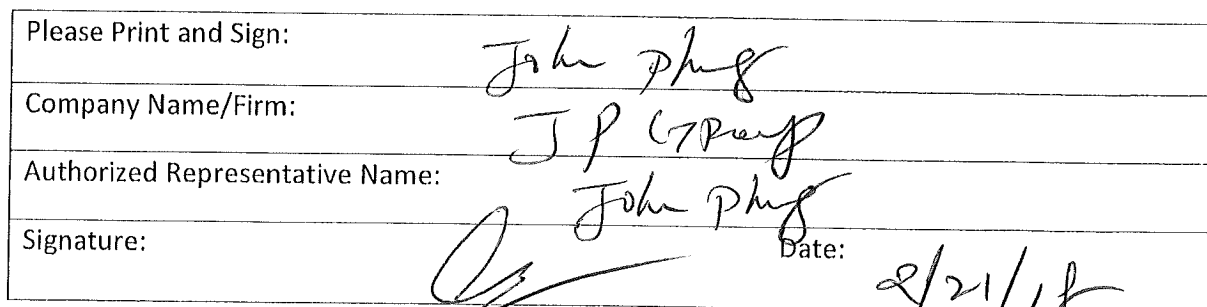 Please Print and Sign: John Phug
Company Name/Firm: JP Group
Authorized Representative Name: John Phug
Signature: Date: 2/21/18